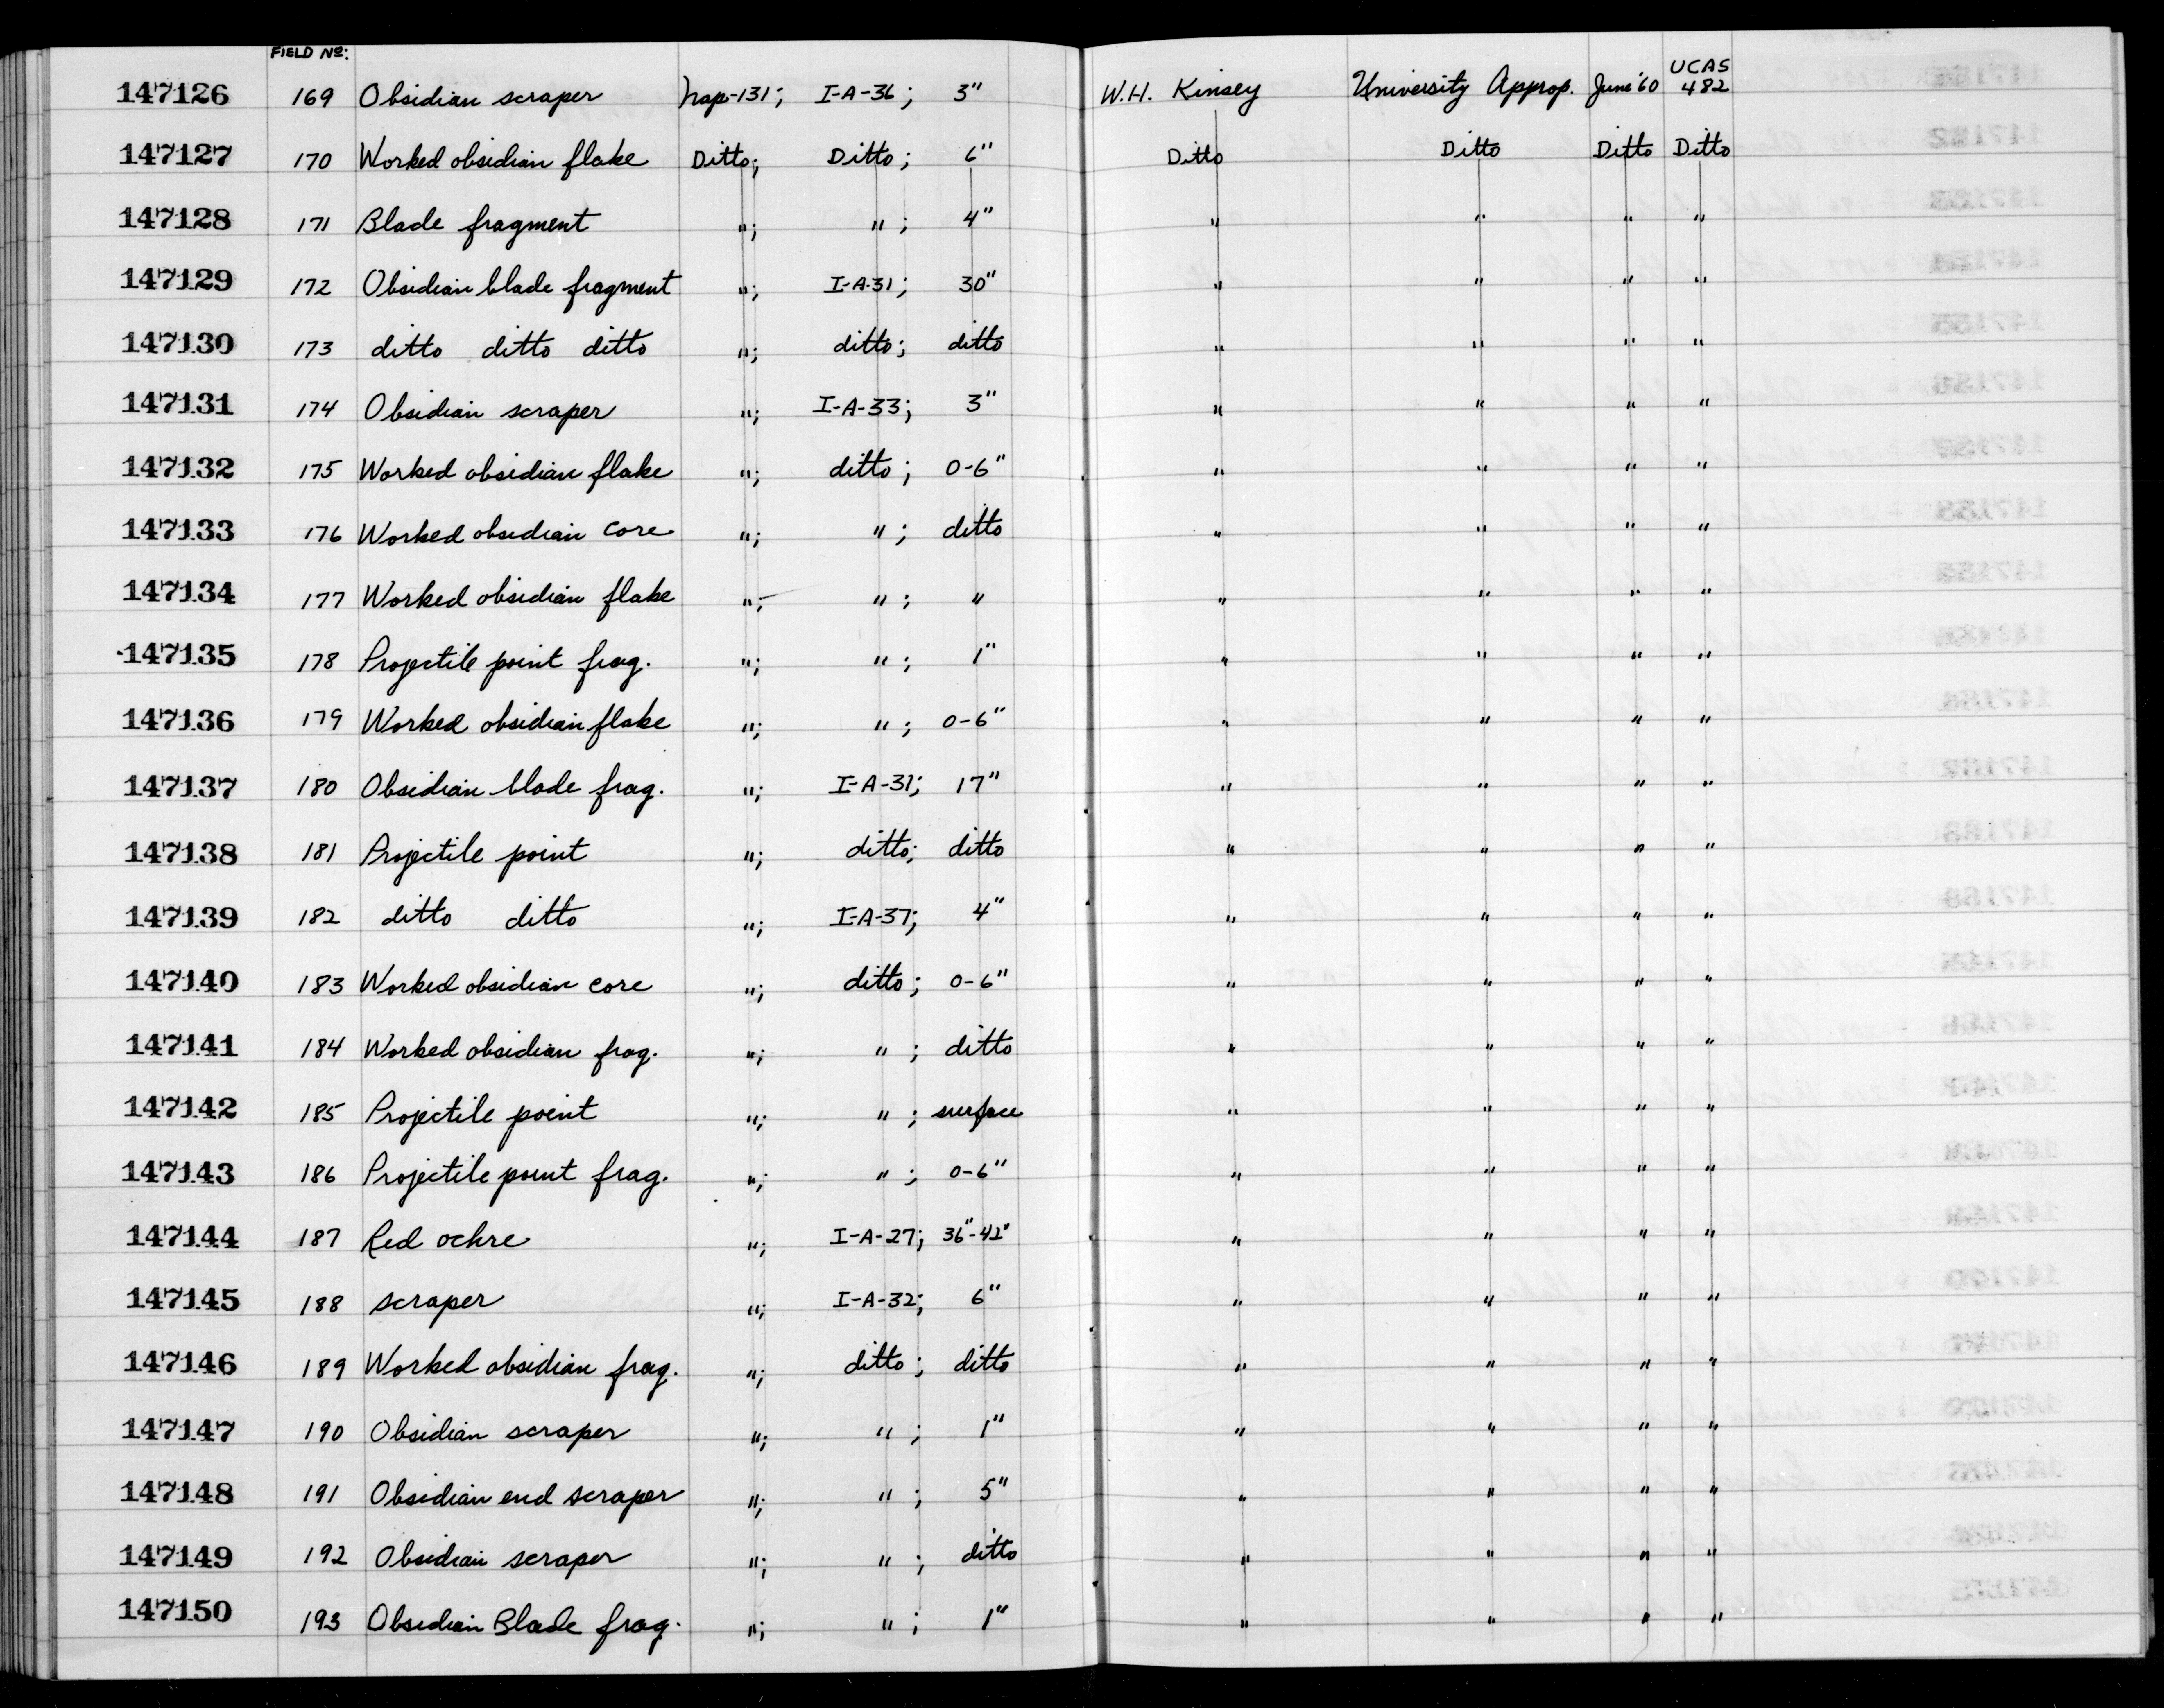 FIELD Nº:
147126 169 Obsidian scraper Nap-131; I-A-36; 3" W.H. Kinsey University Approp. June '60 UCAS 482
147127 170 Worked obsidian flake Ditto; Ditto; 6" Ditto Ditto Ditto Ditto
147128 171 Blade fragment "; "; 4" " " " "
147129 172 Obsidian blade fragment "; I-A-31; 30" " " " "
147130 173 ditto ditto ditto "; ditto; ditto " " " "
147131 174 Obsidian scraper "; I-A-33; 3" " " " "
147132 175 Worked obsidian flake "; ditto; 0-6" " " " "
147133 176 Worked obsidian core "; "; ditto " " " "
147134 177 Worked obsidian flake "; "; " " " " "
147135 178 Projectile point frag. "; "; 1" " " " "
147136 179 Worked obsidian flake "; "; 0-6" " " " "
147137 180 Obsidian blade frag. "; I-A-31; 17" " " " "
147138 181 Projectile point "; ditto; ditto " " " "
147139 182 ditto ditto "; I-A-37; 4" " " " "
147140 183 Worked obsidian core "; ditto; 0-6" " " " "
147141 184 Worked obsidian frag. "; "; ditto " " " "
147142 185 Projectile point "; "; surface " " " "
147143 186 Projectile point frag. "; "; 0-6" " " " "
147144 187 Red ochre "; I-A-27; 36"-42" " " " "
147145 188 scraper "; I-A-32; 6" " " " "
147146 189 Worked obsidian frag. "; ditto; ditto " " " "
147147 190 Obsidian scraper "; "; 1" " " " "
147148 191 Obsidian end scraper "; "; 5" " " " "
147149 192 Obsidian scraper "; "; ditto " " " "
147150 193 Obsidian Blade frag. "; "; 1" " " " "